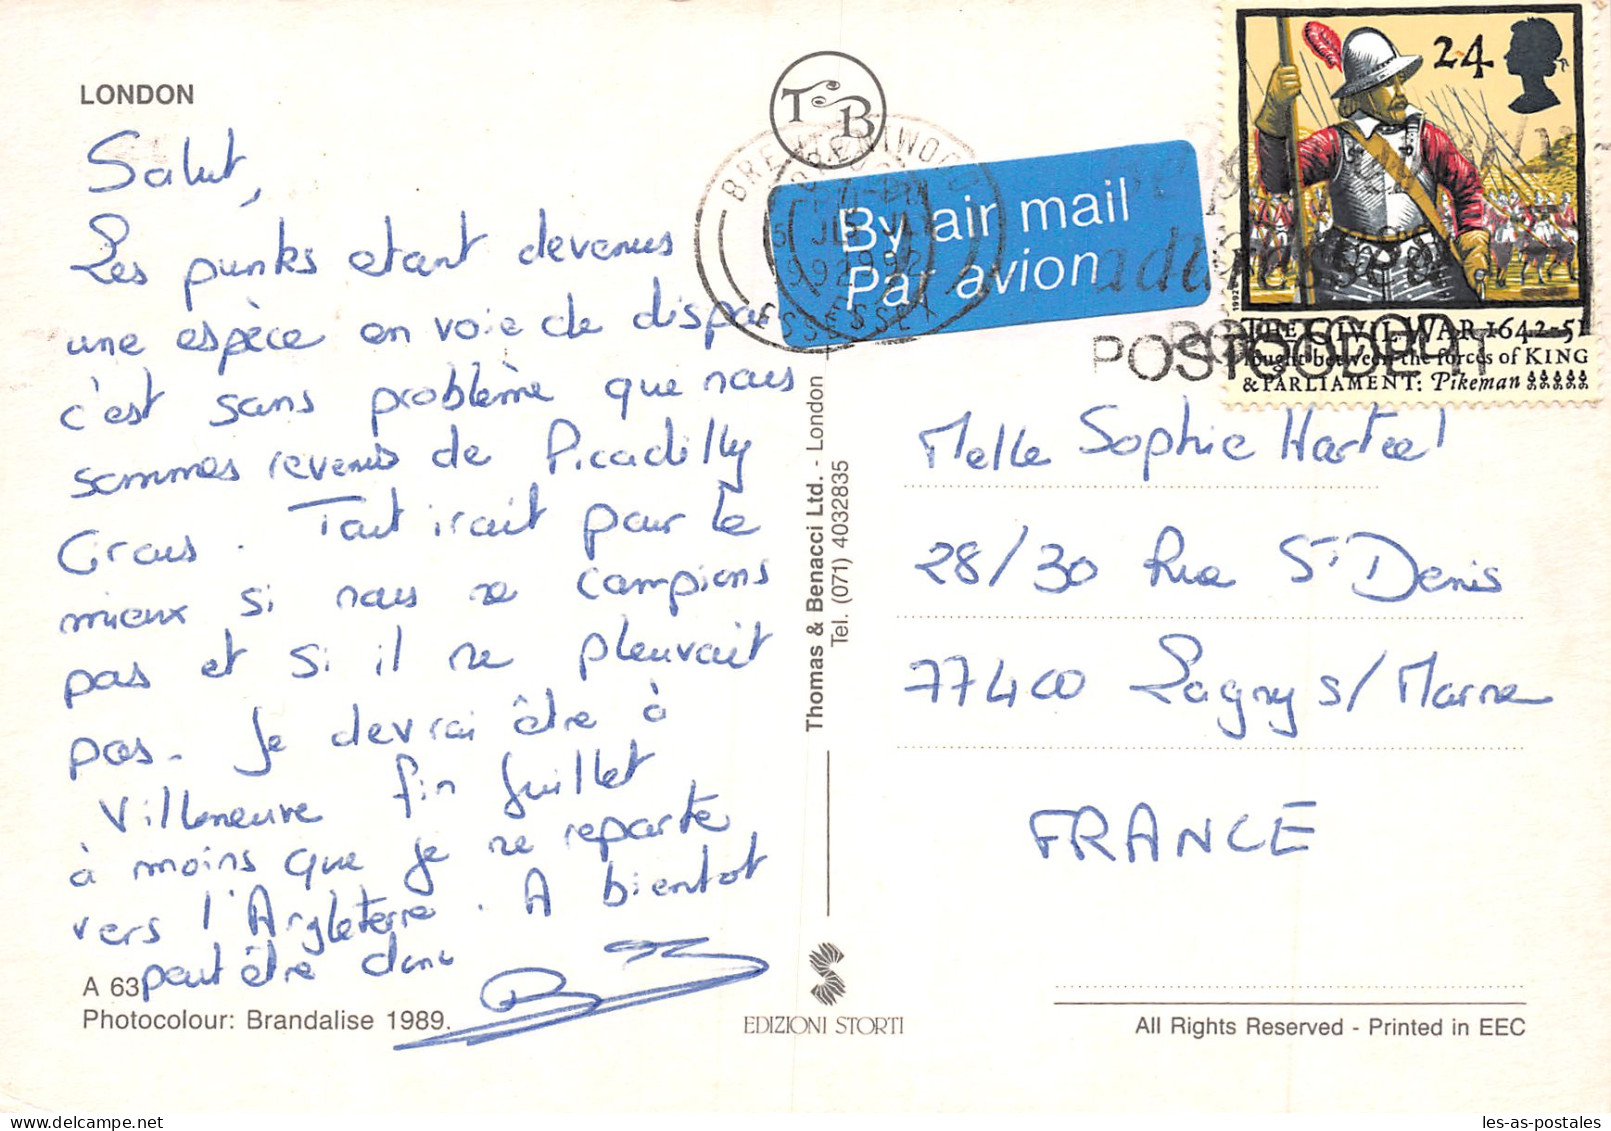 LONDON
Salut,
Les punks etant devenus
une espèce en voie de dispa
c'est sans problème que nous
sommes revenus de Picadilly
Circus. Tout irait pour le
mieux si nous ne campions
pas et si il ne pleuvait
pas. Je devrai être à
Villeneuve fin Juillet
à moins que je ne reparte
vers l'Angleterre. A bientot
peut être donc
A 63
Photocolour: Brandalise 1989.
T B
BRENTWOOD
1992
ESSEX
By air mail
Par avion
Thomas & Benacci Ltd. - London
Tel. (071) 4032835
EDIZIONI STORTI
24
1992
THE CIVIL WAR 1642-51
fought between the forces of KING
& PARLIAMENT: Pikeman
addressed
POSTCODE IT
Melle Sophie Harteel
28/30 Rue St Denis
77400 Lagny s/ Marne
FRANCE
All Rights Reserved - Printed in EEC
les-as-postales